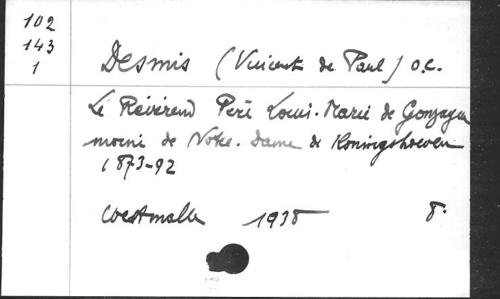 102
143
1
Desmis (Vincent de Paul) O.C.
Le Révérend Père Louis-Marie de Gonzague
moine de Notre-Dame de Koningshoeven
1873-92
Westmalle 1938 8°